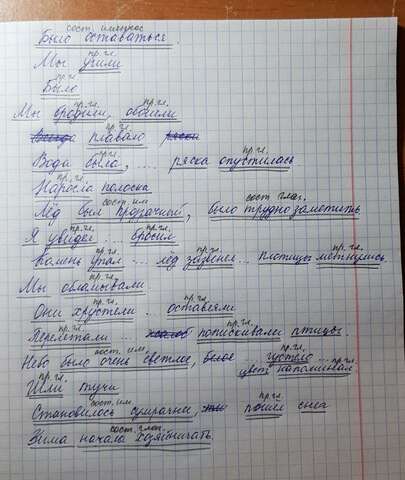 сост. именное
Было оставаться.
пр. гл.
Мы ушли
пр. гл.
Было
пр. гл. пр. гл.
Мы бродили, обошли
пр. гл.
плавало ряски
пр. гл. пр. гл.
Вода была, ... ряска опустилась
пр. гл.
Наросла полоска
сост. им. сост. глаг.
Лёд был прозрачный, было трудно заметить
пр. гл. пр. гл.
Я увидел ... бросил
пр. гл. пр. гл. пр. гл.
Камень упал ... лёд зазвенел ... плотицы метнулись
пр. гл.
Мы обламывали
пр. гл. пр. гл.
Они хрустели ... оставляли
пр. гл. пр. гл.
Перелетали ... попискивали птицы
сост. им. пр. гл. пр. гл.
Небо было очень светлее, густело ...
цвет напоминал
пр. гл.
Шли тучи
сост. им. пр. гл.
Становилось сумрачнее, пошел снег
сост. глаг.
Зима начала хозяйничать.